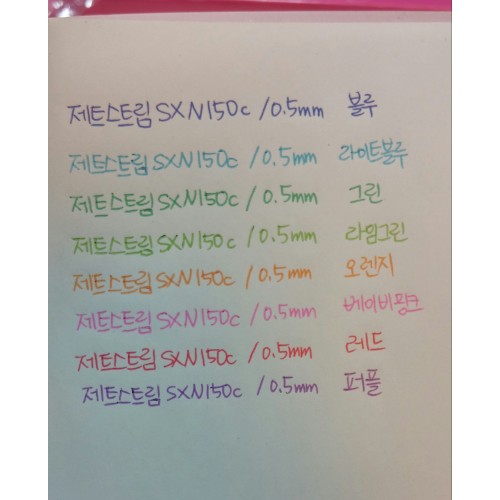 제트스트림 SXN150c / 0.5mm 블루
제트스트림 SXN150c / 0.5mm 라이트블루
제트스트림 SXN150c / 0.5mm 그린
제트스트림 SXN150c / 0.5mm 라임그린
제트스트림 SXN150c / 0.5mm 오렌지
제트스트림 SXN150c / 0.5mm 베이비핑크
제트스트림 SXN150c / 0.5mm 레드
제트스트림 SXN150c / 0.5mm 퍼플